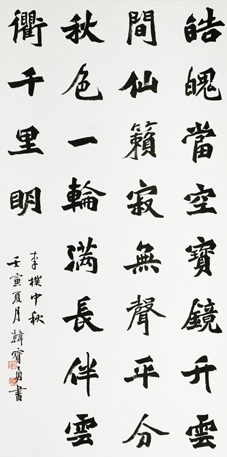 皓魄當空寶鏡升雲
間仙籟寂無聲平分
秋色一輪滿長伴雲
衢千里明
李樸中秋
壬寅夏月韓寶勇書